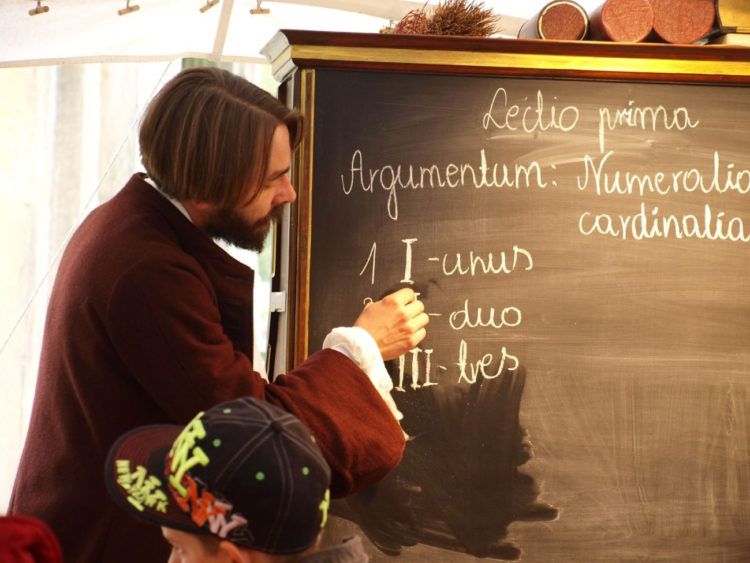 Lectio prima
Argumentum: Numeralia
cardinalia
1 I - unus
duo
III - tres